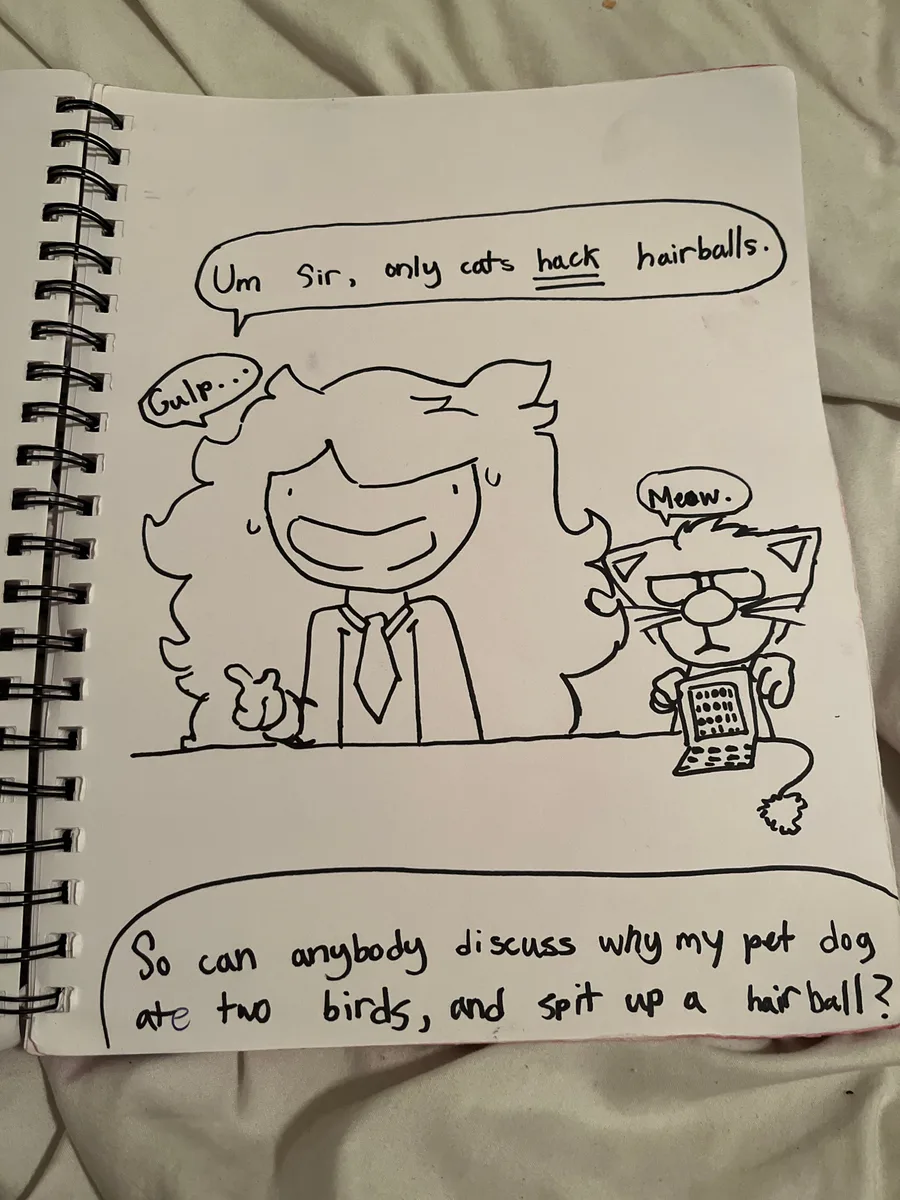 Um Sir, only cats hack hairballs.
Gulp...
Meow.
So can anybody discuss why my pet dog
ate two birds, and spit up a hairball?